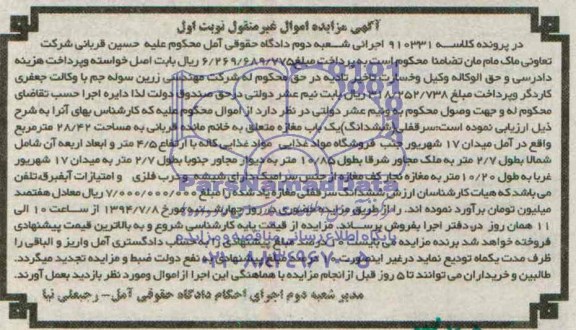 آگهی مزایده اموال غیر منقول نوبت اول
در پرونده کلاسه ۹۱۰۳۳۱ اجرائی شعبه دوم دادگاه حقوقی آمل محکوم علیه حسین قربانی شرکت
تعاونی ماک مام مان تضامنا محکوم است به پرداخت مبلغ ۶/۲۶۹/۶۸۹/۷۷۵ ریال بابت اصل خواسته وپرداخت هزینه
دادرسی و حق الوکاله وکیل وخسارت تاخیر تادیه در حق محکوم له شرکت مهندسی زرین سوله جم با وکالت جعفری
کاردگر وپرداخت مبلغ ریال بابت نیم عشر دولتی در حق صندوق دولت لذا دایره اجرا حسب تقاضای
محکوم له و جهت وصول محکوم به ونیم عشر دولتی در نظر دارد از اموال محکوم علیه که کارشناس بهای آنرا به شرح
ذیل ارزیابی نموده است:سرقفلی(ششدانگ)یک باب مغازه متعلق به خانم مائده قربانی به مساحت ۲۸/۴۲ مترمربع
واقع در آمل میدان ۱۷ شهریور جنب فروشگاه مواد غذایی مواد غذایی کاله با ارتفاع ۴/۵ متر و ابعاد اربعه آن شامل
شمالا بطول ۲/۷ متر به ملک مجاور شرقا بطول ۱۰/۸۵ متر به دیوار مجاور جنوبا بطول ۲/۷ متر به میدان ۱۷ شهریور
غربا به طول ۱۰/۲۰ متر به مغازه نجار کف مغازه از جنس سرامیک دارای شیشه ودرب فلزی و امتیازات آبفبرق،تلفن
می باشد که هیات کارشناسان ارزش ششدانگ سرقفلی مغازه یاد شده را مبلغ ۷/۰۰۰/۰۰۰/۰۰۰ ریال معادل هفتصد
میلیون تومان برآورد نموده اند. را از طریق مزایده حضوری در روز چهارشنبه مورخ ۱۳۹۴/۷/۸ از ساعت ۱۰ الی
۱۱ همان روز در دفتر اجرا بفروش برساند. مزایده از قیمت پایه کارشناسی شروع و به بالاترین قیمت پیشنهادی
فروخته خواهد شد برنده مزایده می بایست ده درصد مبلغ پیشنهادی را به حساب دادگستری آمل واریز و الباقی را
ظرف مدت یکماه تودیع نماید درغیر اینصورت پیشنهادی به نفع دولت ضبط و مزایده تجدید میگردد.
طالبین و خریداران می توانند تا ۵ روز قبل از انجام مزایده با هماهنگی این اجرا از اموال ومورد نظر بازدید بعمل آورند.
مدیر شعبه دوم اجرای احکام دادگاه حقوقی آمل- رجبعلی نیا
ParsNamadData
پایگاه اطلاع رسانی مناقصه و مزایده